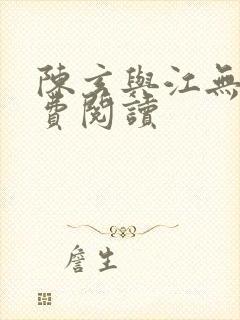 陳玄與江無
費閱讀
詹生